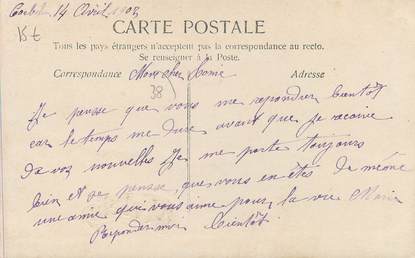 Corbeil 14 Avril 1903
15 €
CARTE POSTALE
Tous les pays étrangers n'acceptent pas la correspondance au recto.
Se renseigner à la Poste.
Correspondance Mon cher Adresse
38
Je pense que vous me repondrer bientôt
car le temps me dure avant que je recoive
de vos nouvelles Je me porte toujours
bien et je pense que vous en êtes de même
une amie qui vous aime pour la vie Marie
Reponder moi bientôt